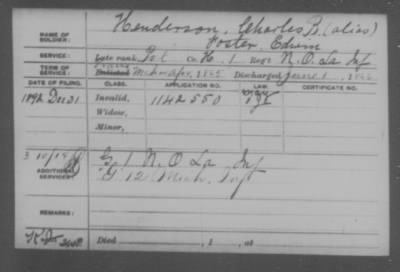 NAME OF SOLDIER: Henderson, Charles B. (alias)
Foster, Edwin
SERVICE: Late rank, Pvt Co. H, 1 Reg't N.O. La Inf
TERM OF SERVICE: Enlisted 1865 Discharged June 1, 186
DATE OF FILING. CLASS. APPLICATION NO. LAW. CERTIFICATE NO.
1892 Dec 31 Invalid, 1142550
Widow,
Minor,
ADDITIONAL SERVICES: G 1 N.O La Inf
G 12 Mich. Inf
REMARKS:
Died , 1 , at